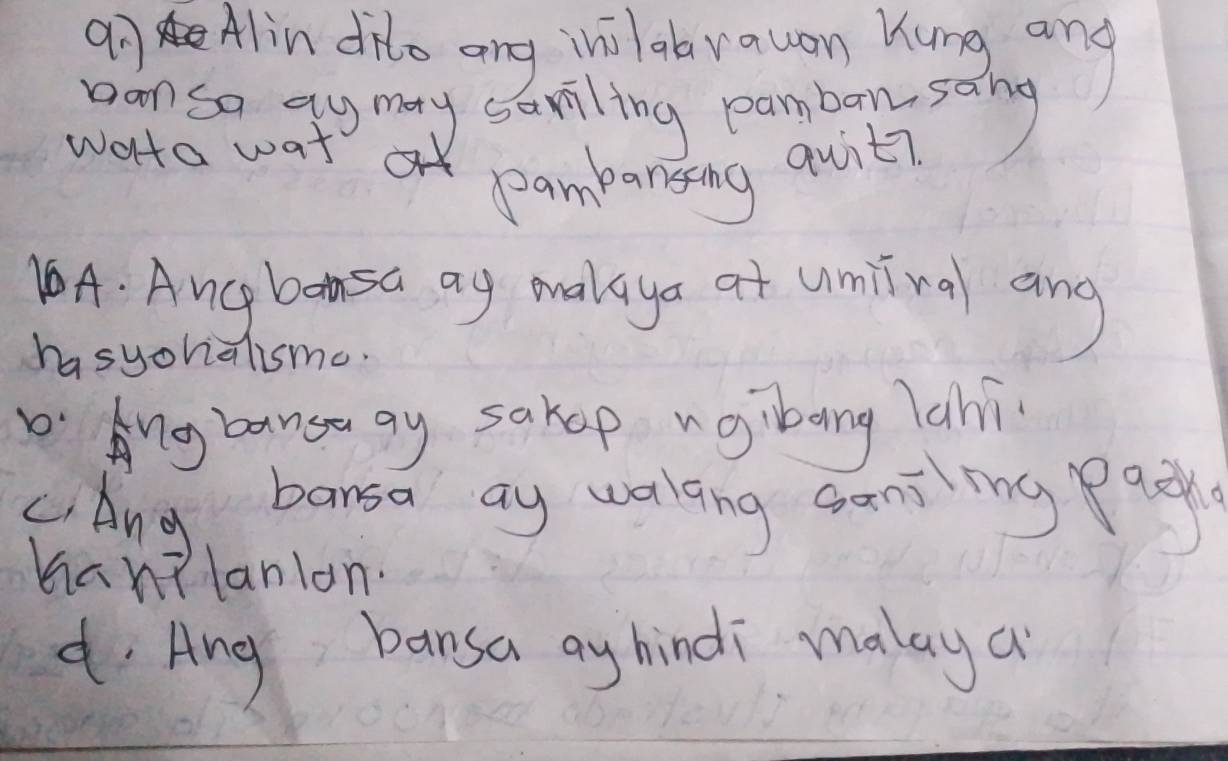 9.) Alin dito ang inilalarawan kung ang
bansa ay may sariling pambansang
watawat at pambansang awit?
A. Ang bansa ay malaya at umiiral ang
nasyonalismo.
b. Ang bansa ay sakop ng ibang lahi.
c. Ang bansa ay walang sariling pagka
kanilanlan.
d. Ang bansa ay hindi malaya